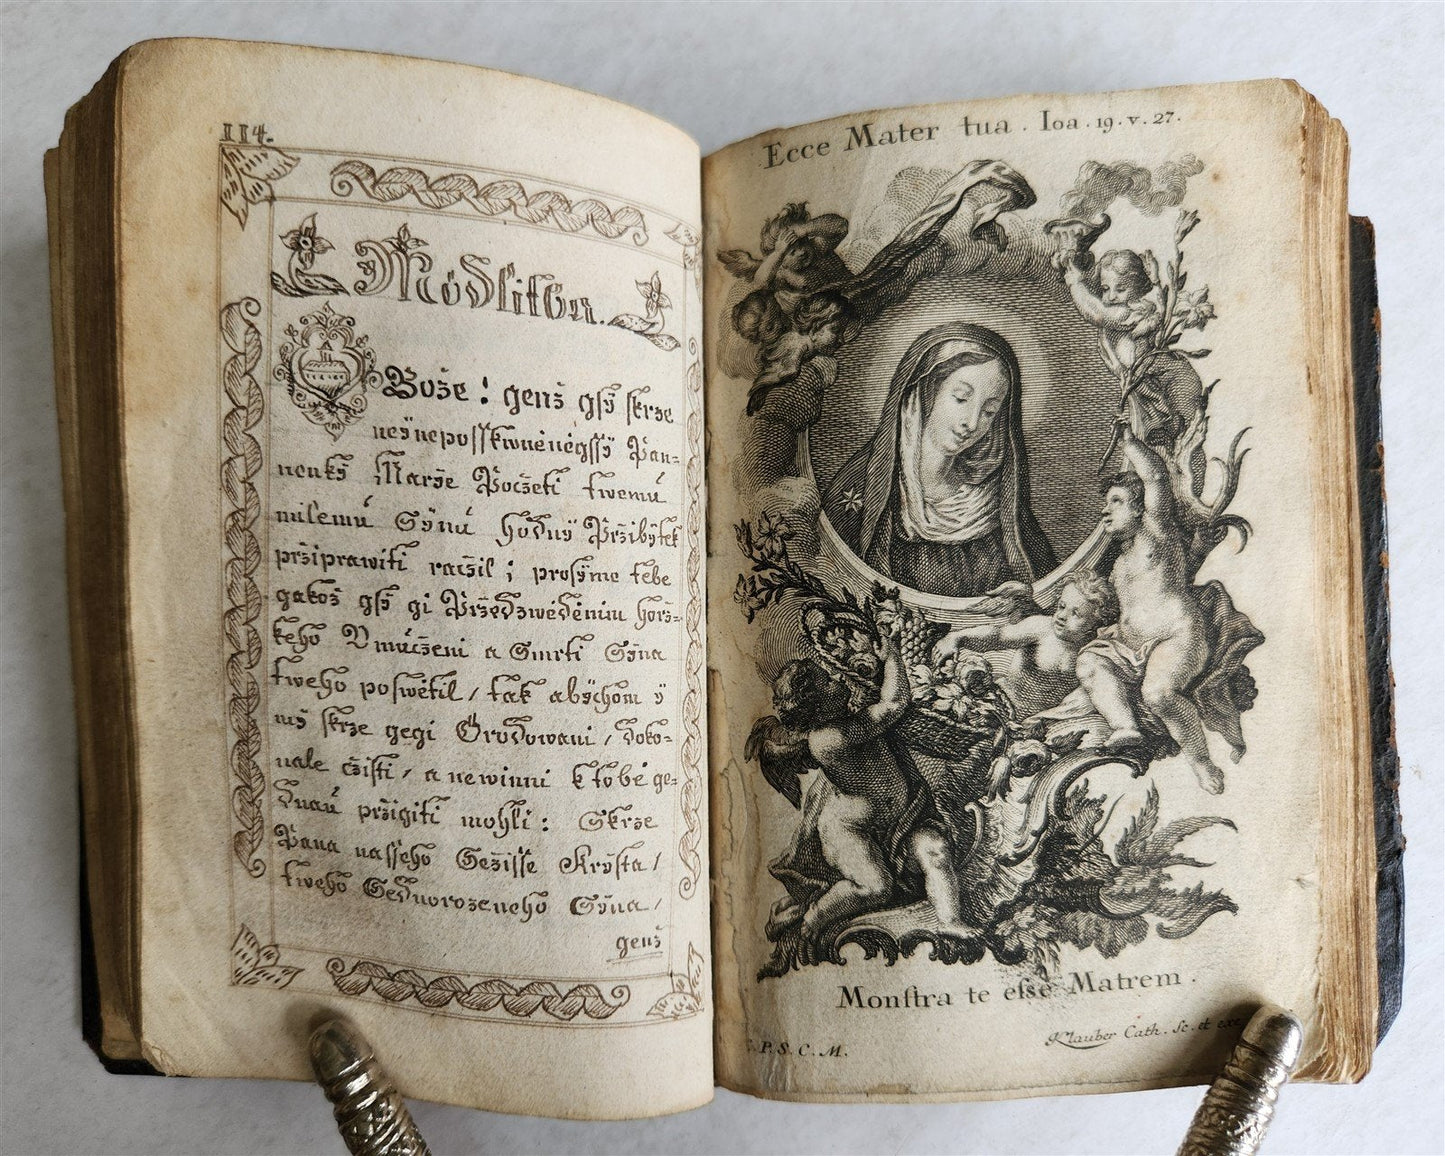 114.
Módlitba.
Bože! genž gsy̆ skrze
ney̆neposskwrněněgssy̆ Pan=
nenky̆ Marže Početi twemú
milému Sy̆nú hodny̆ Pržiby̆tek
pržiprawiti račžil; prosy̆me tebe
gakož gsy̆ gi Pržedzwěděnim horž=
kého Umúčženi a Smrti Sy̆na
tweho poswětil, tak aby̆chom y̆
my̆ skrze gegi Orodowani, doko=
nale čžisti, a newinni k tobě ge=
dnaú pržigiti mohli: Skrze
Pana nasseho Gežisse Kry̆sta,
tweho Gednorozeneho Sy̆na,
genž
Ecce Mater tua. Ioa. 19. v. 27.
Monſtra te eſse Matrem.
P. S. C. M.
Klauber Cath. Sc. et exc